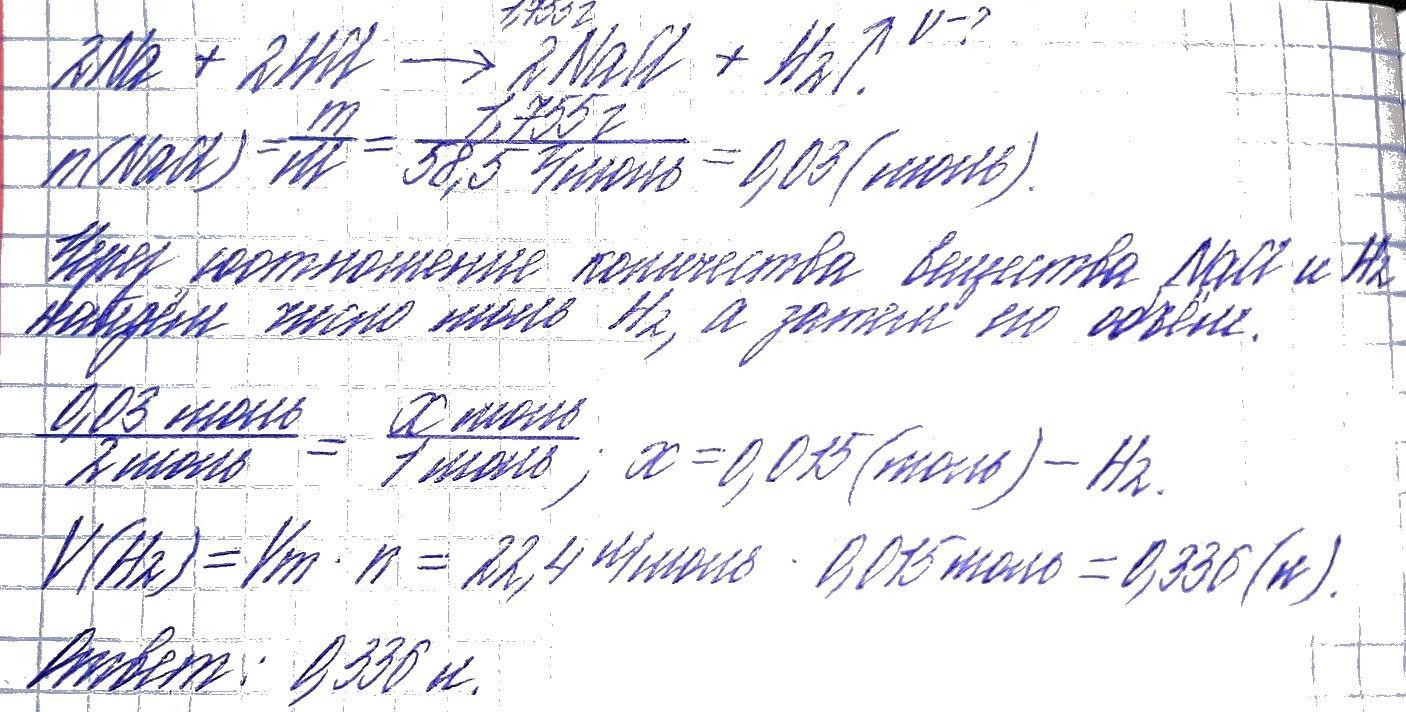 1,755 г V-?
2Na + 2HCl → 2NaCl + H₂↑.
n(NaCl) = m/M = 1,755 г/58,5 г/моль = 0,03 (моль).
Через соотношение количества вещества NaCl и H₂
найдём число моль H₂, а затем по объём.
0,03 моль/2 моль = x моль/1 моль ; x = 0,015 (моль) – H₂.
V(H₂) = Vm · n = 22,4 л/моль · 0,015 моль = 0,336 (л).
Ответ: 0,336 л.